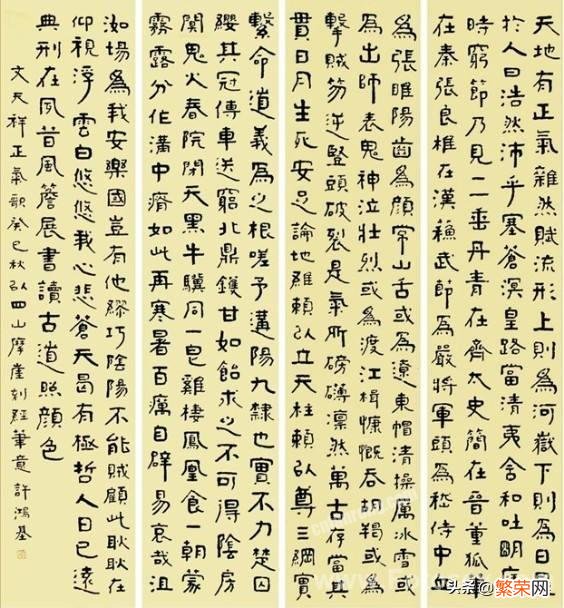 天地有正氣雜然賦流形上則為河嶽下則為日
於人曰浩然沛乎塞蒼溟皇路當清夷含和吐明庭
時窮節乃見一一垂丹青在齊太史簡在晉董狐
在秦張良椎在漢蘇武節為嚴將軍頭為嵇侍中血
為張睢陽齒為顏常山舌或為遼東帽清操厲冰雪或
為出師表鬼神泣壯烈或為渡江楫慷慨吞胡羯或為
擊賊笏逆豎頭破裂是氣所磅礴凜然萬古存當其
貫日月生死安足論地維賴以立天柱賴以尊三綱實
繫命道義為之根嗟予遘陽九隸也實不力楚囚
纓其冠傳車送窮北鼎鑊甘如飴求之不可得陰房
闃鬼火春院閉天黑牛驥同一皂雞棲鳳凰食一朝蒙
霧露分作溝中瘠如此再寒暑百癘自辟易哀哉沮
洳場為我安樂國豈有他繆巧陰陽不能賊顧此耿耿在
仰視浮雲白悠悠我心悲蒼天曷有極哲人日已遠
典刑在夙昔風簷展書讀古道照顏色
文天祥正氣歌癸巳秋以四山摩崖刻經筆意許鴻基
头条@繁荣网